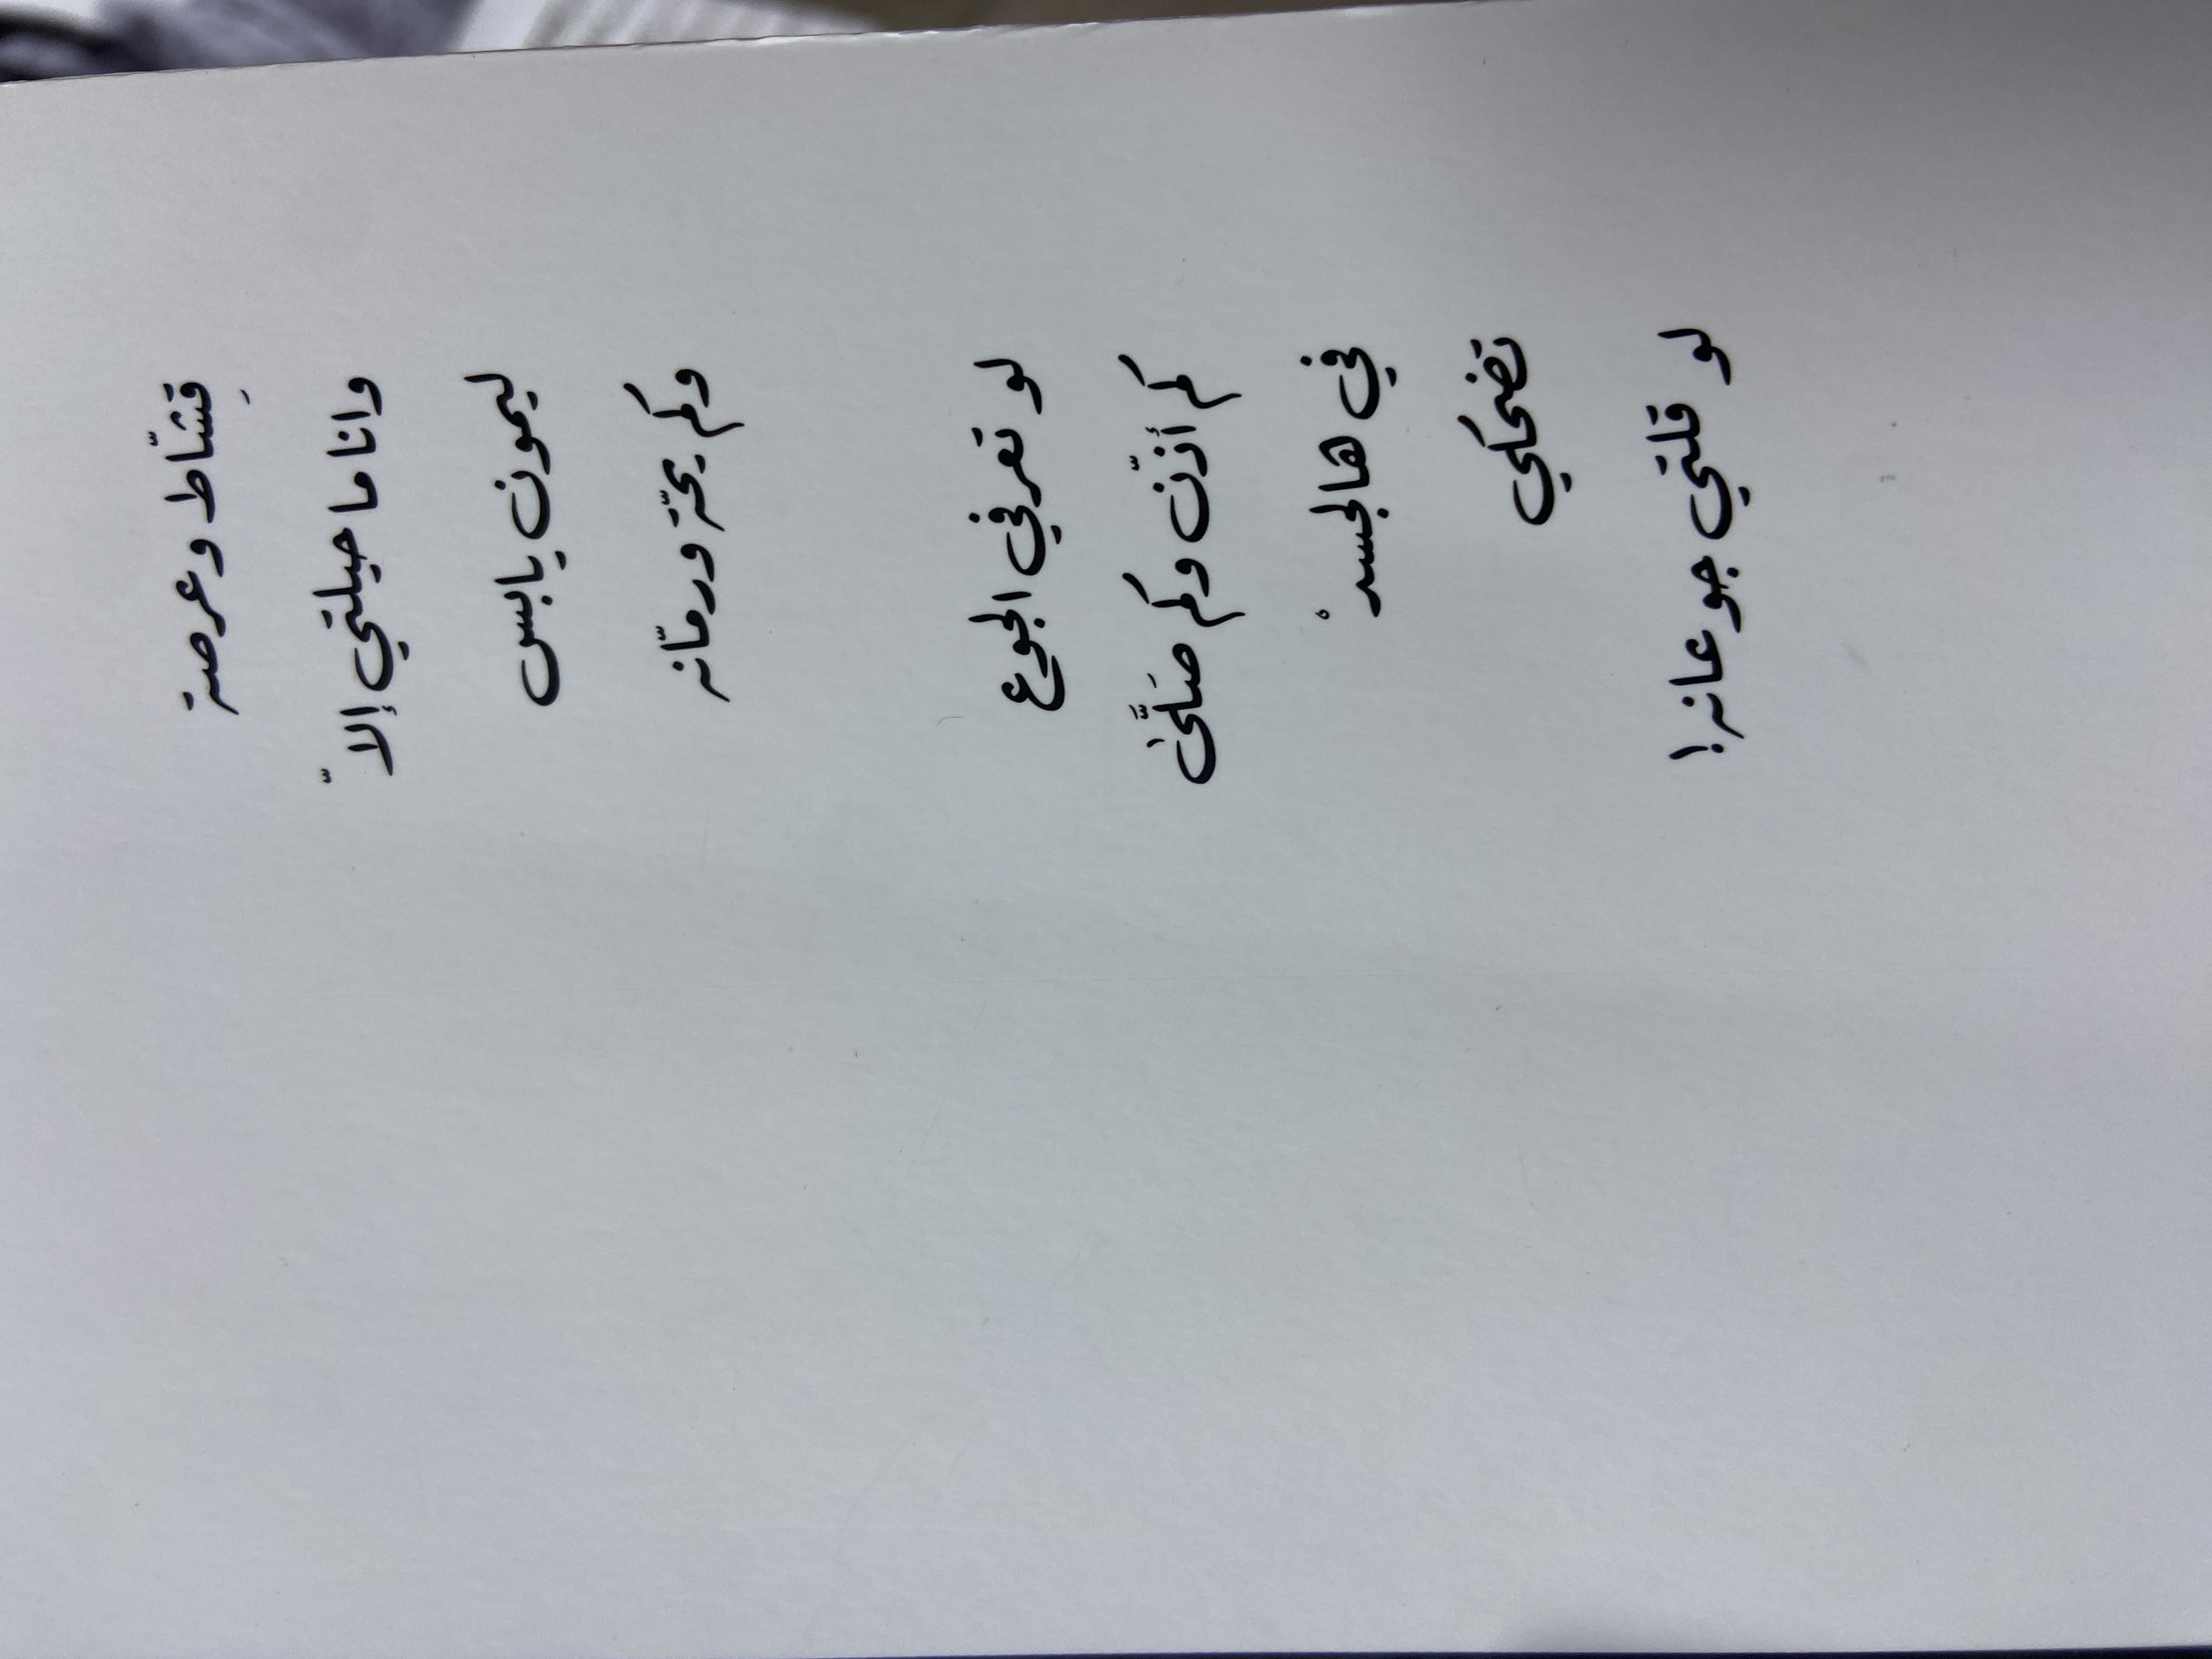 قِشّاط وعرصة
وانا ما حيلتي إلاّ
ليمون يابس
وكَم يحّة ورمّانه
لو تعرفي الجوع
كَم أذّن وكَم صَلَّىٰ
في هالجسدْ
تضحكَي
لو قلتي جوعانه!